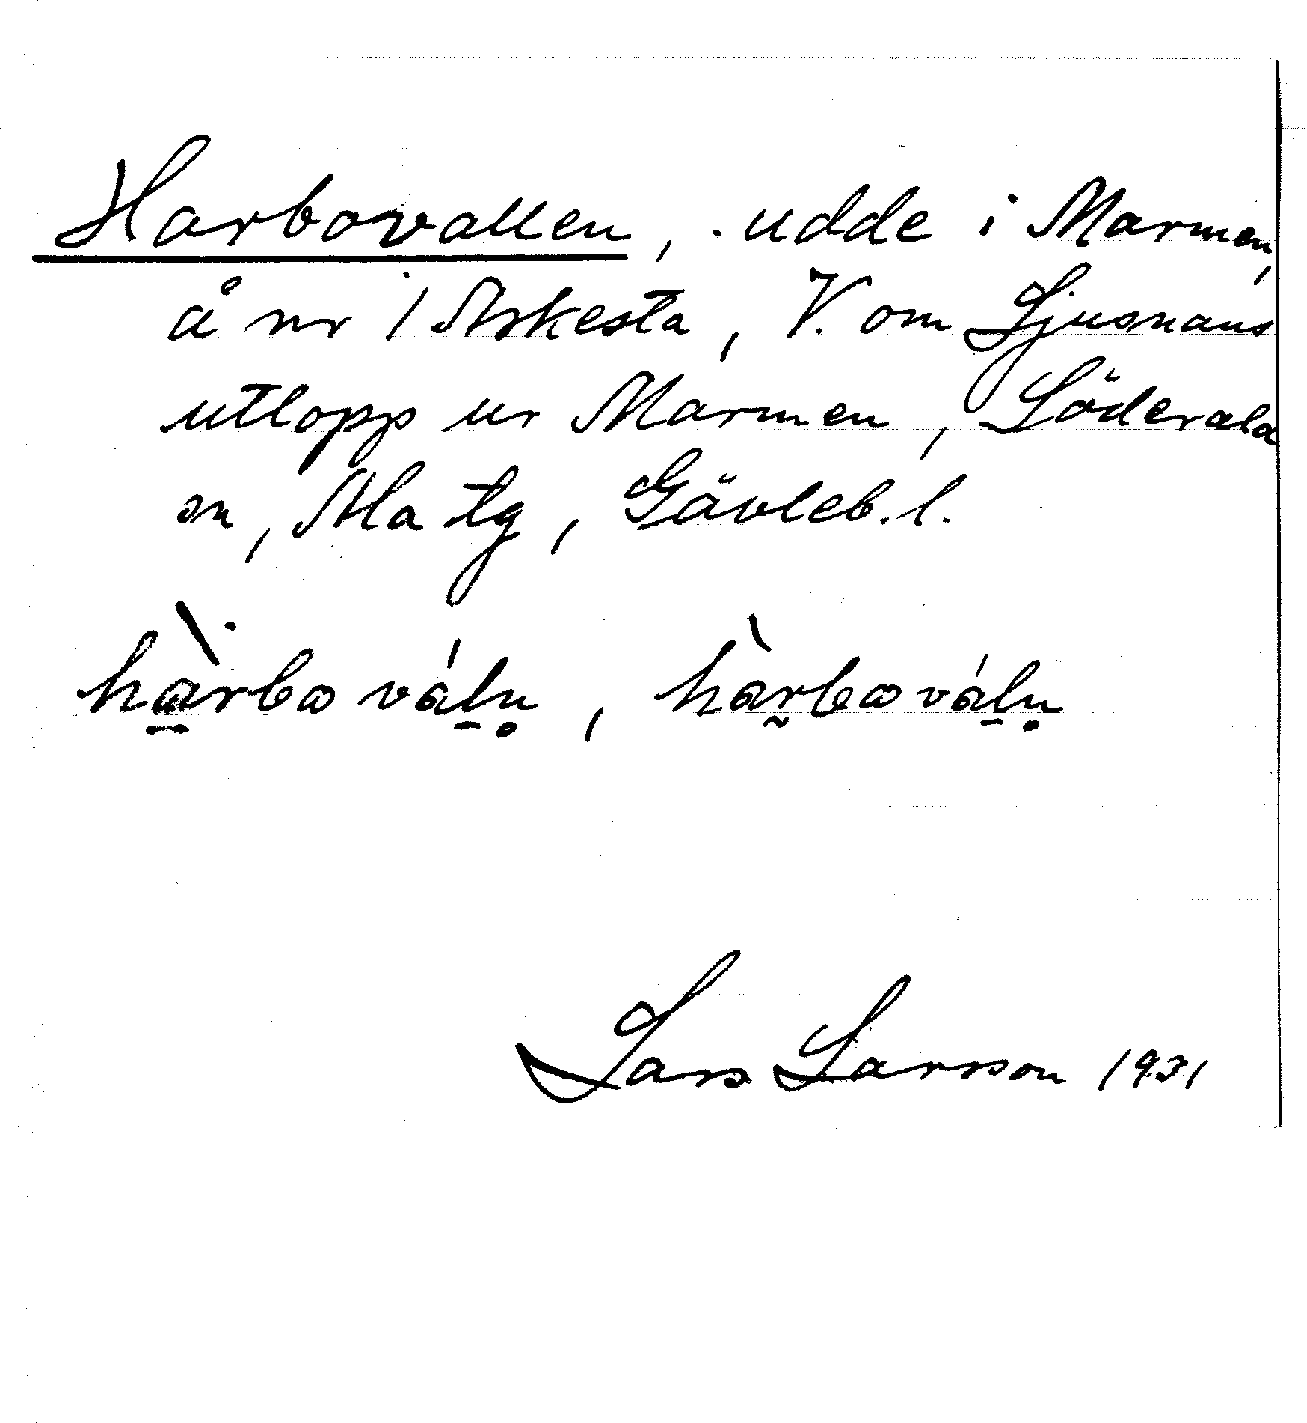 Harbovallen, udde i Marmen,
å nr 1 Askesta, V. om Ljusnans
utlopp ur Marmen, Söderala
sn, Ala tg, Gävleb. l.
hàrbováln̥, hàrbováln̥
Lars Larsson 1931